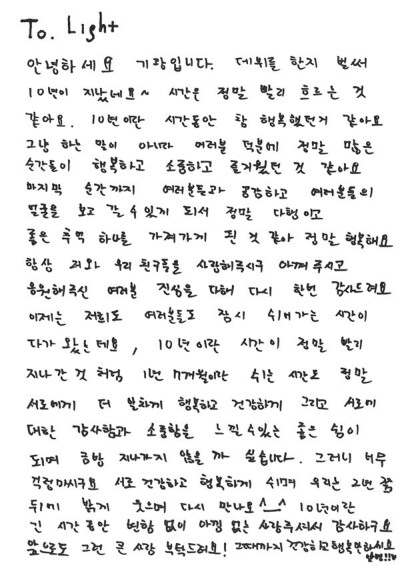 To. Light
안녕하세요 기광입니다. 데뷔를 한지 벌써
10년이 지났네요~ 시간은 정말 빨리 흐르는 것
같아요. 10년이란 시간동안 참 행복했던거 같아요
그냥 하는 말이 아니라 여러분 덕분에 정말 많은
순간들이 행복하고 소중하고 즐거웠던 것 같아요
마지막 순간까지 여러분들과 공감하고 여러분들의
얼굴을 보고 갈 수 있게 되서 정말 다행이고
좋은 추억 하나를 가져가게 된 것 같아 정말 행복해요
항상 저와 우리 친구들을 사랑해주시구 아껴주시고
응원해주신 여러분 진심을 다해 다시 한번 감사드려요
이제는 저희도 여러분들도 잠시 쉬어가는 시간이
다가 왔는데요, 10년이란 시간이 정말 빨리
지나간 것 처럼 1년 7개월이란 쉬는 시간도 정말
서로에게 더 알차게 행복하고 건강하게 그리고 서로에
대한 감사함과 소중함을 느낄 수 있는 좋은 쉼이
되며 금방 지나가지 않을까 싶습니다. 그러니 너무
걱정마시구요 서로 건강하고 행복하게 쉬며 우리는 2년 쫌
뒤에 밝게 웃으며 다시 만나요^_^ 10년이란
긴 시간동안 변함 없이 아낌 없는 사랑주셔서 감사하구요
앞으로도 그런 큰 사랑 부탁드려요! 그때까지 건강하고 행복만하세요
안녕!!